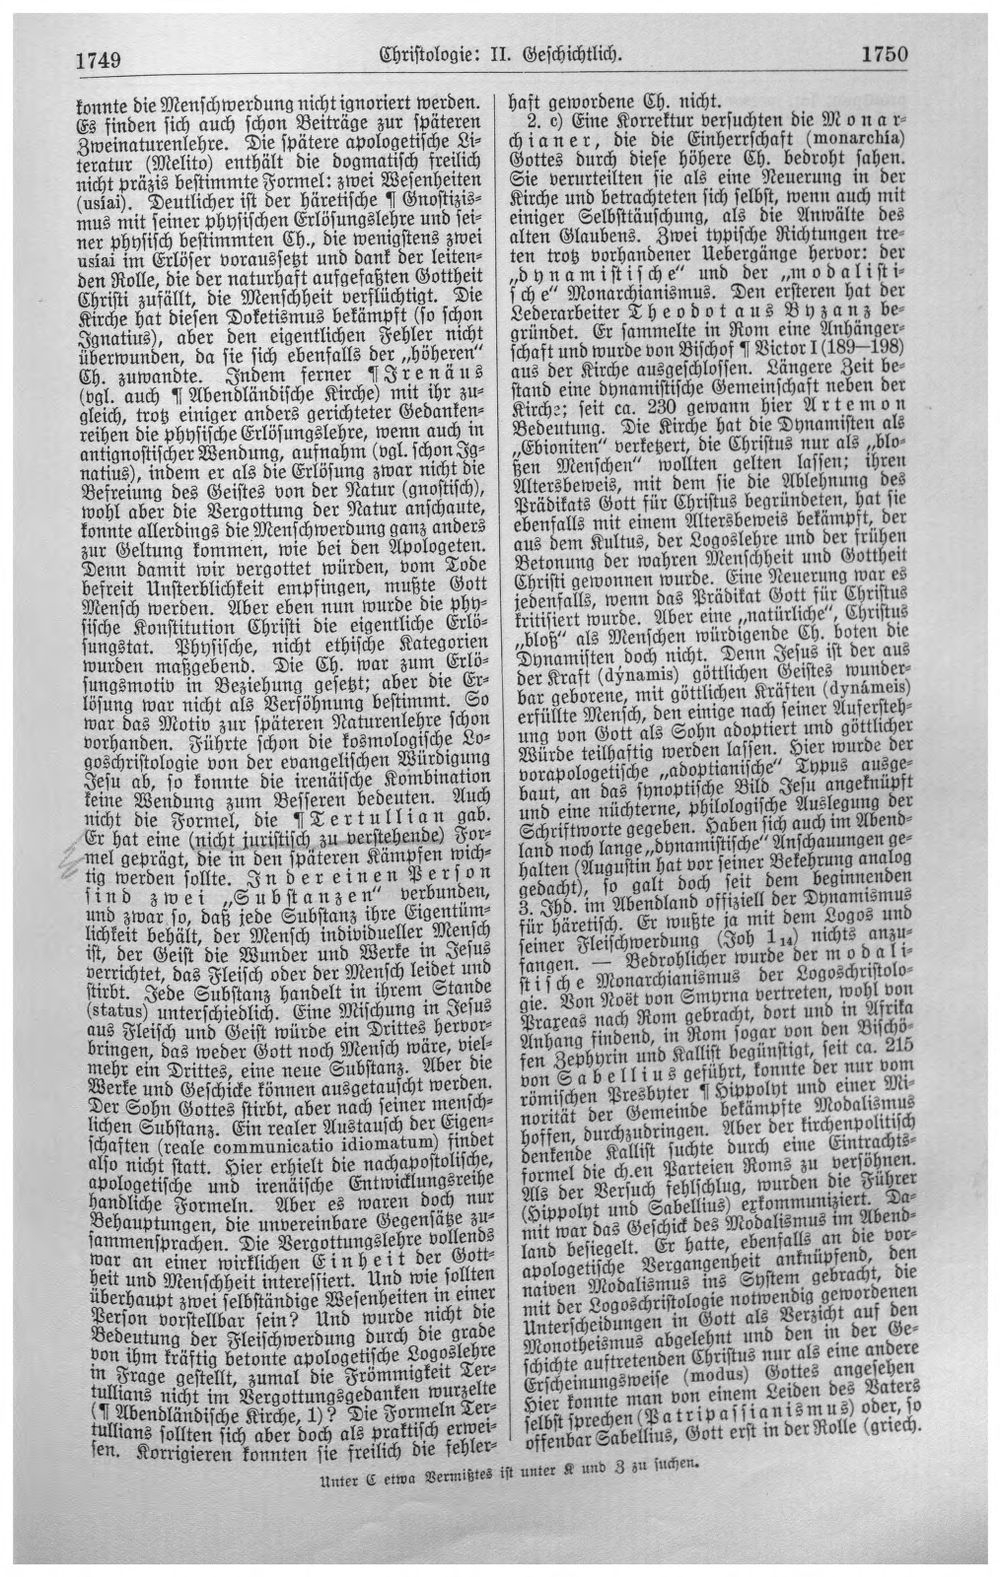 1749
Christologie: II. Geschichtlich.
1750
konnte die Menschwerdung nicht ignoriert werden.
Es finden sich auch schon Beiträge zur späteren
Zweinaturenlehre. Die spätere apologetische Li-
teratur (Melito) enthält die dogmatisch freilich
nicht präzis bestimmte Formel: zwei Wesenheiten
(usíai). Deutlicher ist der häretische ¶ Gnostizis-
mus mit seiner physischen Erlösungslehre und sei-
ner physisch bestimmten Ch., die wenigstens zwei
usíai im Erlöser voraussetzt und dank der leiten-
den Rolle, die der naturhaft aufgefaßten Gottheit
Christi zufällt, die Menschheit verflüchtigt. Die
Kirche hat diesen Doketismus bekämpft (so schon
Ignatius), aber den eigentlichen Fehler nicht
überwunden, da sie sich ebenfalls der „höheren“
Ch. zuwandte. Indem ferner ¶ Irenäus
(vgl. auch ¶ Abendländische Kirche) mit ihr zu-
gleich, trotz einiger anders gerichteter Gedanken-
reihen die physische Erlösungslehre, wenn auch in
antignostischer Wendung, aufnahm (vgl. schon Ig-
natius), indem er als die Erlösung zwar nicht die
Befreiung des Geistes von der Natur (gnostisch),
wohl aber die Vergottung der Natur anschaute,
konnte allerdings die Menschwerdung ganz anders
zur Geltung kommen, wie bei den Apologeten.
Denn damit wir vergottet würden, vom Tode
befreit Unsterblichkeit empfingen, mußte Gott
Mensch werden. Aber eben nun wurde die phy-
sische Konstitution Christi die eigentliche Erlö-
sungstat. Physische, nicht ethische Kategorien
wurden maßgebend. Die Ch. war zum Erlö-
sungsmotiv in Beziehung gesetzt; aber die Er-
lösung war nicht als Versöhnung bestimmt. So
war das Motiv zur späteren Naturenlehre schon
vorhanden. Führte schon die kosmologische Lo-
goschristologie von der evangelischen Würdigung
Jesu ab, so konnte die irenäische Kombination
keine Wendung zum Besseren bedeuten. Auch
nicht die Formel, die ¶ Tertullian gab.
Er hat eine (nicht juristisch zu verstehende) For-
mel geprägt, die in den späteren Kämpfen wich-
tig werden sollte. In der einen Person
sind zwei „Substanzen“ verbunden,
und zwar so, daß jede Substanz ihre Eigentüm-
lichkeit behält, der Mensch individueller Mensch
ist, der Geist die Wunder und Werke in Jesus
verrichtet, das Fleisch oder der Mensch leidet und
stirbt. Jede Substanz handelt in ihrem Stande
(status) unterschiedlich. Eine Mischung in Jesus
aus Fleisch und Geist würde ein Drittes hervor-
bringen, das weder Gott noch Mensch wäre, viel-
mehr ein Drittes, eine neue Substanz. Aber die
Werke und Geschicke können ausgetauscht werden.
Der Sohn Gottes stirbt, aber nach seiner mensch-
lichen Substanz. Ein realer Austausch der Eigen-
schaften (reale communicatio idiomatum) findet
also nicht statt. Hier erhielt die nachapostolische,
apologetische und irenäische Entwicklungsreihe
handliche Formeln. Aber es waren doch nur
Behauptungen, die unvereinbare Gegensätze zu-
sammensprachen. Die Vergottungslehre vollends
war an einer wirklichen Einheit der Gott-
heit und Menschheit interessiert. Und wie sollten
überhaupt zwei selbständige Wesenheiten in einer
Person vorstellbar sein? Und wurde nicht die
Bedeutung der Fleischwerdung durch die grade
von ihm kräftig betonte apologetische Logoslehre
in Frage gestellt, zumal die Frömmigkeit Ter-
tullians nicht im Vergottungsgedanken wurzelte
(¶ Abendländische Kirche, 1)? Die Formeln Ter-
tullians sollten sich aber doch als praktisch erwei-
sen. Korrigieren konnten sie freilich die fehler-
haft gewordene Ch. nicht.
2. c) Eine Korrektur versuchten die Monar-
chianer, die die Einherrschaft (monarchía)
Gottes durch diese höhere Ch. bedroht sahen.
Sie verurteilten sie als eine Neuerung in der
Kirche und betrachteten sich selbst, wenn auch mit
einiger Selbsttäuschung, als die Anwälte des
alten Glaubens. Zwei typische Richtungen tre-
ten trotz vorhandener Uebergänge hervor: der
„dynamistische“ und der „modalisti-
sche“ Monarchianismus. Den ersteren hat der
Lederarbeiter Theodot aus Byzanz be-
gründet. Er sammelte in Rom eine Anhänger-
schaft und wurde von Bischof ¶ Victor I (189—198)
aus der Kirche ausgeschlossen. Längere Zeit be-
stand eine dynamistische Gemeinschaft neben der
Kirche; seit ca. 230 gewann hier Artemon
Bedeutung. Die Kirche hat die Dynamisten als
„Ebioniten“ verketzert, die Christus nur als „blo-
ßen Menschen“ wollten gelten lassen; ihren
Altersbeweis, mit dem sie die Ablehnung des
Prädikats Gott für Christus begründeten, hat sie
ebenfalls mit einem Altersbeweis bekämpft, der
aus dem Kultus, der Logoslehre und der frühen
Betonung der wahren Menschheit und Gottheit
Christi gewonnen wurde. Eine Neuerung war es
jedenfalls, wenn das Prädikat Gott für Christus
kritisiert wurde. Aber eine „natürliche“, Christus
„bloß“ als Menschen würdigende Ch. boten die
Dynamisten doch nicht. Denn Jesus ist der aus
der Kraft (dýnamis) göttlichen Geistes wunder-
bar geborene, mit göttlichen Kräften (dynámeis)
erfüllte Mensch, den einige nach seiner Aufersteh-
ung von Gott als Sohn adoptiert und göttlicher
Würde teilhaftig werden lassen. Hier wurde der
vorapologetische „adoptianische“ Typus ausge-
baut, an das synoptische Bild Jesu angeknüpft
und eine nüchterne, philologische Auslegung der
Schriftworte gegeben. Haben sich auch im Abend-
land noch lange „dynamistische“ Anschauungen ge-
halten (Augustin hat vor seiner Bekehrung analog
gedacht), so galt doch seit dem beginnenden
3. Jhd. im Abendland offiziell der Dynamismus
für häretisch. Er wußte ja mit dem Logos und
seiner Fleischwerdung (Joh 1 14) nichts anzu-
fangen. — Bedrohlicher wurde der modali-
stische Monarchianismus der Logoschristolo-
gie. Von Noët von Smyrna vertreten, wohl von
Praxeas nach Rom gebracht, dort und in Afrika
Anhang findend, in Rom sogar von den Bischö-
fen Zephyrin und Kallist begünstigt, seit ca. 215
von Sabellius geführt, konnte der nur vom
römischen Presbyter ¶ Hippolyt und einer Mi-
norität der Gemeinde bekämpfte Modalismus
hoffen, durchzudringen. Aber der kirchenpolitisch
denkende Kallist suchte durch eine Eintrachts-
formel die ch.en Parteien Roms zu versöhnen.
Als der Versuch fehlschlug, wurden die Führer
(Hippolyt und Sabellius) exkommuniziert. Da-
mit war das Geschick des Modalismus im Abend-
land besiegelt. Er hatte, ebenfalls an die vor-
apologetische Vergangenheit anknüpfend, den
naiven Modalismus ins System gebracht, die
mit der Logoschristologie notwendig gewordenen
Unterscheidungen in Gott als Verzicht auf den
Monotheismus abgelehnt und den in der Ge-
schichte auftretenden Christus nur als eine andere
Erscheinungsweise (modus) Gottes angesehen
Hier konnte man von einem Leiden des Vaters
selbst sprechen (Patripassianismus) oder, so
offenbar Sabellius, Gott erst in der Rolle (griech.
Unter C etwa Vermißtes ist unter K und Z zu suchen.